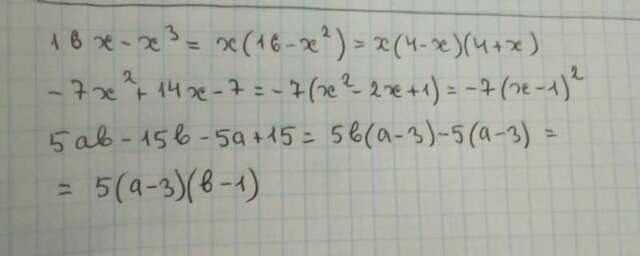 16x - x³ = x(16 - x²) = x(4 - x)(4 + x)
- 7x² + 14x - 7 = - 7(x² - 2x + 1) = - 7(x - 1)²
5ab - 15b - 5a + 15 = 5b(a - 3) - 5(a - 3) =
= 5(a - 3)(b - 1)